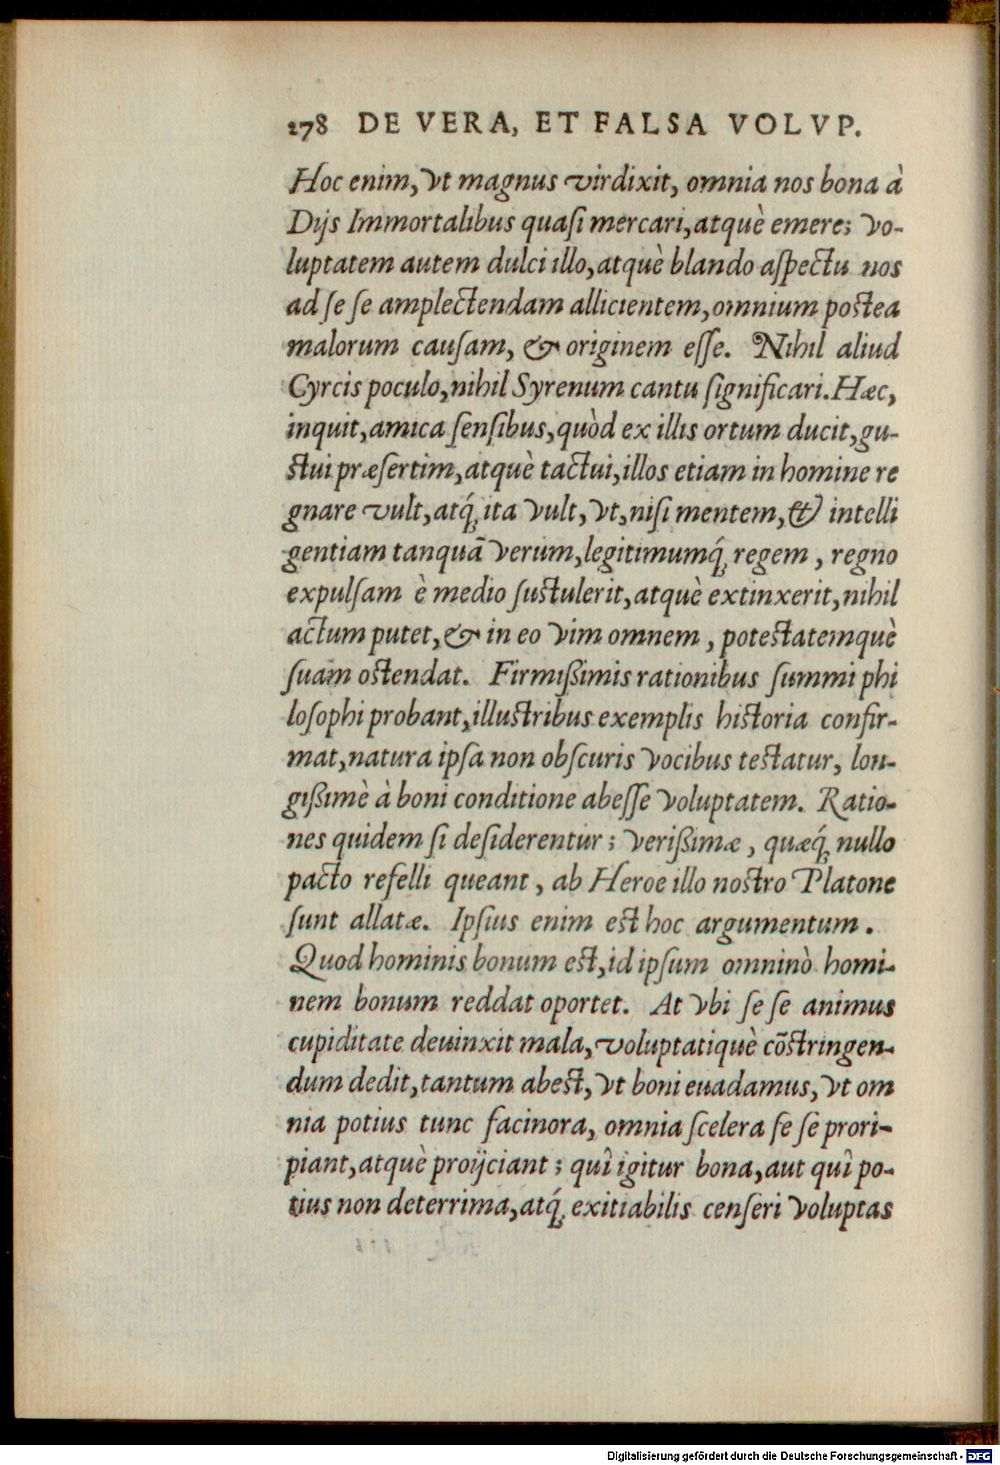 278 DE VERA, ET FALSA VOLVP.
Hoc enim, vt magnus vir dixit, omnia nos bona à
Dijs Immortalibus quaſi mercari, atquè emere; vo-
luptatem autem dulci illo, atquè blando aſpectu nos
ad ſe ſe amplectendam allicientem, omnium postea
malorum cauſam, & originem eſſe. Nihil aliud
Cyrcis poculo, nihil Syrenum cantu ſignificari. Hæc,
inquit, amica ſenſibus, quòd ex illis ortum ducit, gu-
ſtui præſertim, atquè tactui, illos etiam in homine re
gnare vult, atq́; ita vult, vt, niſi mentem, & intelli
gentiam tanquā verum, legitimumq́; regem, regno
expulſam è medio ſuſtulerit, atquè extinxerit, nihil
actum putet, & in eo vim omnem, poteſtatemquè
ſuam oſtendat. Firmißimis rationibus ſummi phi
loſophi probant, illuſtribus exemplis hiſtoria confir-
mat, natura ipſa non obſcuris vocibus teſtatur, lon-
gißimè à boni conditione abeſſe voluptatem. Ratio-
nes quidem ſi deſiderentur; verißimæ, quæq́; nullo
pacto refelli queant, ab Heroe illo noſtro Platone
ſunt allatæ. Ipſius enim eſt hoc argumentum.
Quod hominis bonum eſt, id ipſum omninò homi-
nem bonum reddat oportet. At vbi ſe ſe animus
cupiditate deuinxit mala, voluptatiquè cōſtringen-
dum dedit, tantum abeſt, vt boni euadamus, vt om
nia potius tunc facinora, omnia ſcelera ſe ſe prori-
piant, atquè proijciant; quî igitur bona, aut quî po-
tius non deterrima, atq́; exitiabilis cenſeri voluptas
Digitalisierung gefördert durch die Deutsche Forschungsgemeinschaft - DFG